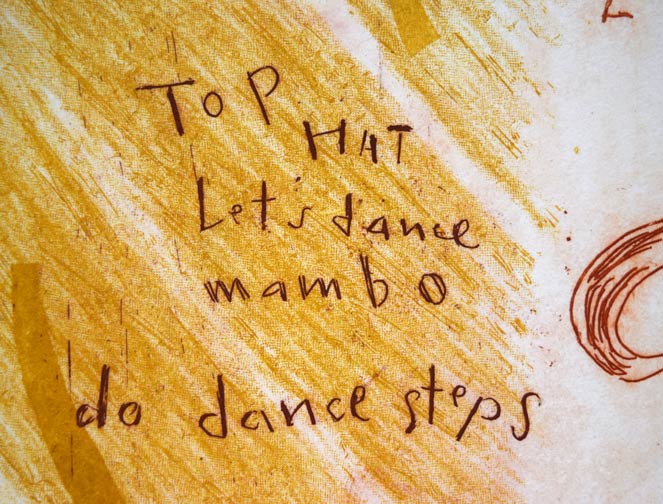 TOP
HAT
Let's dance
mambo
do dance steps